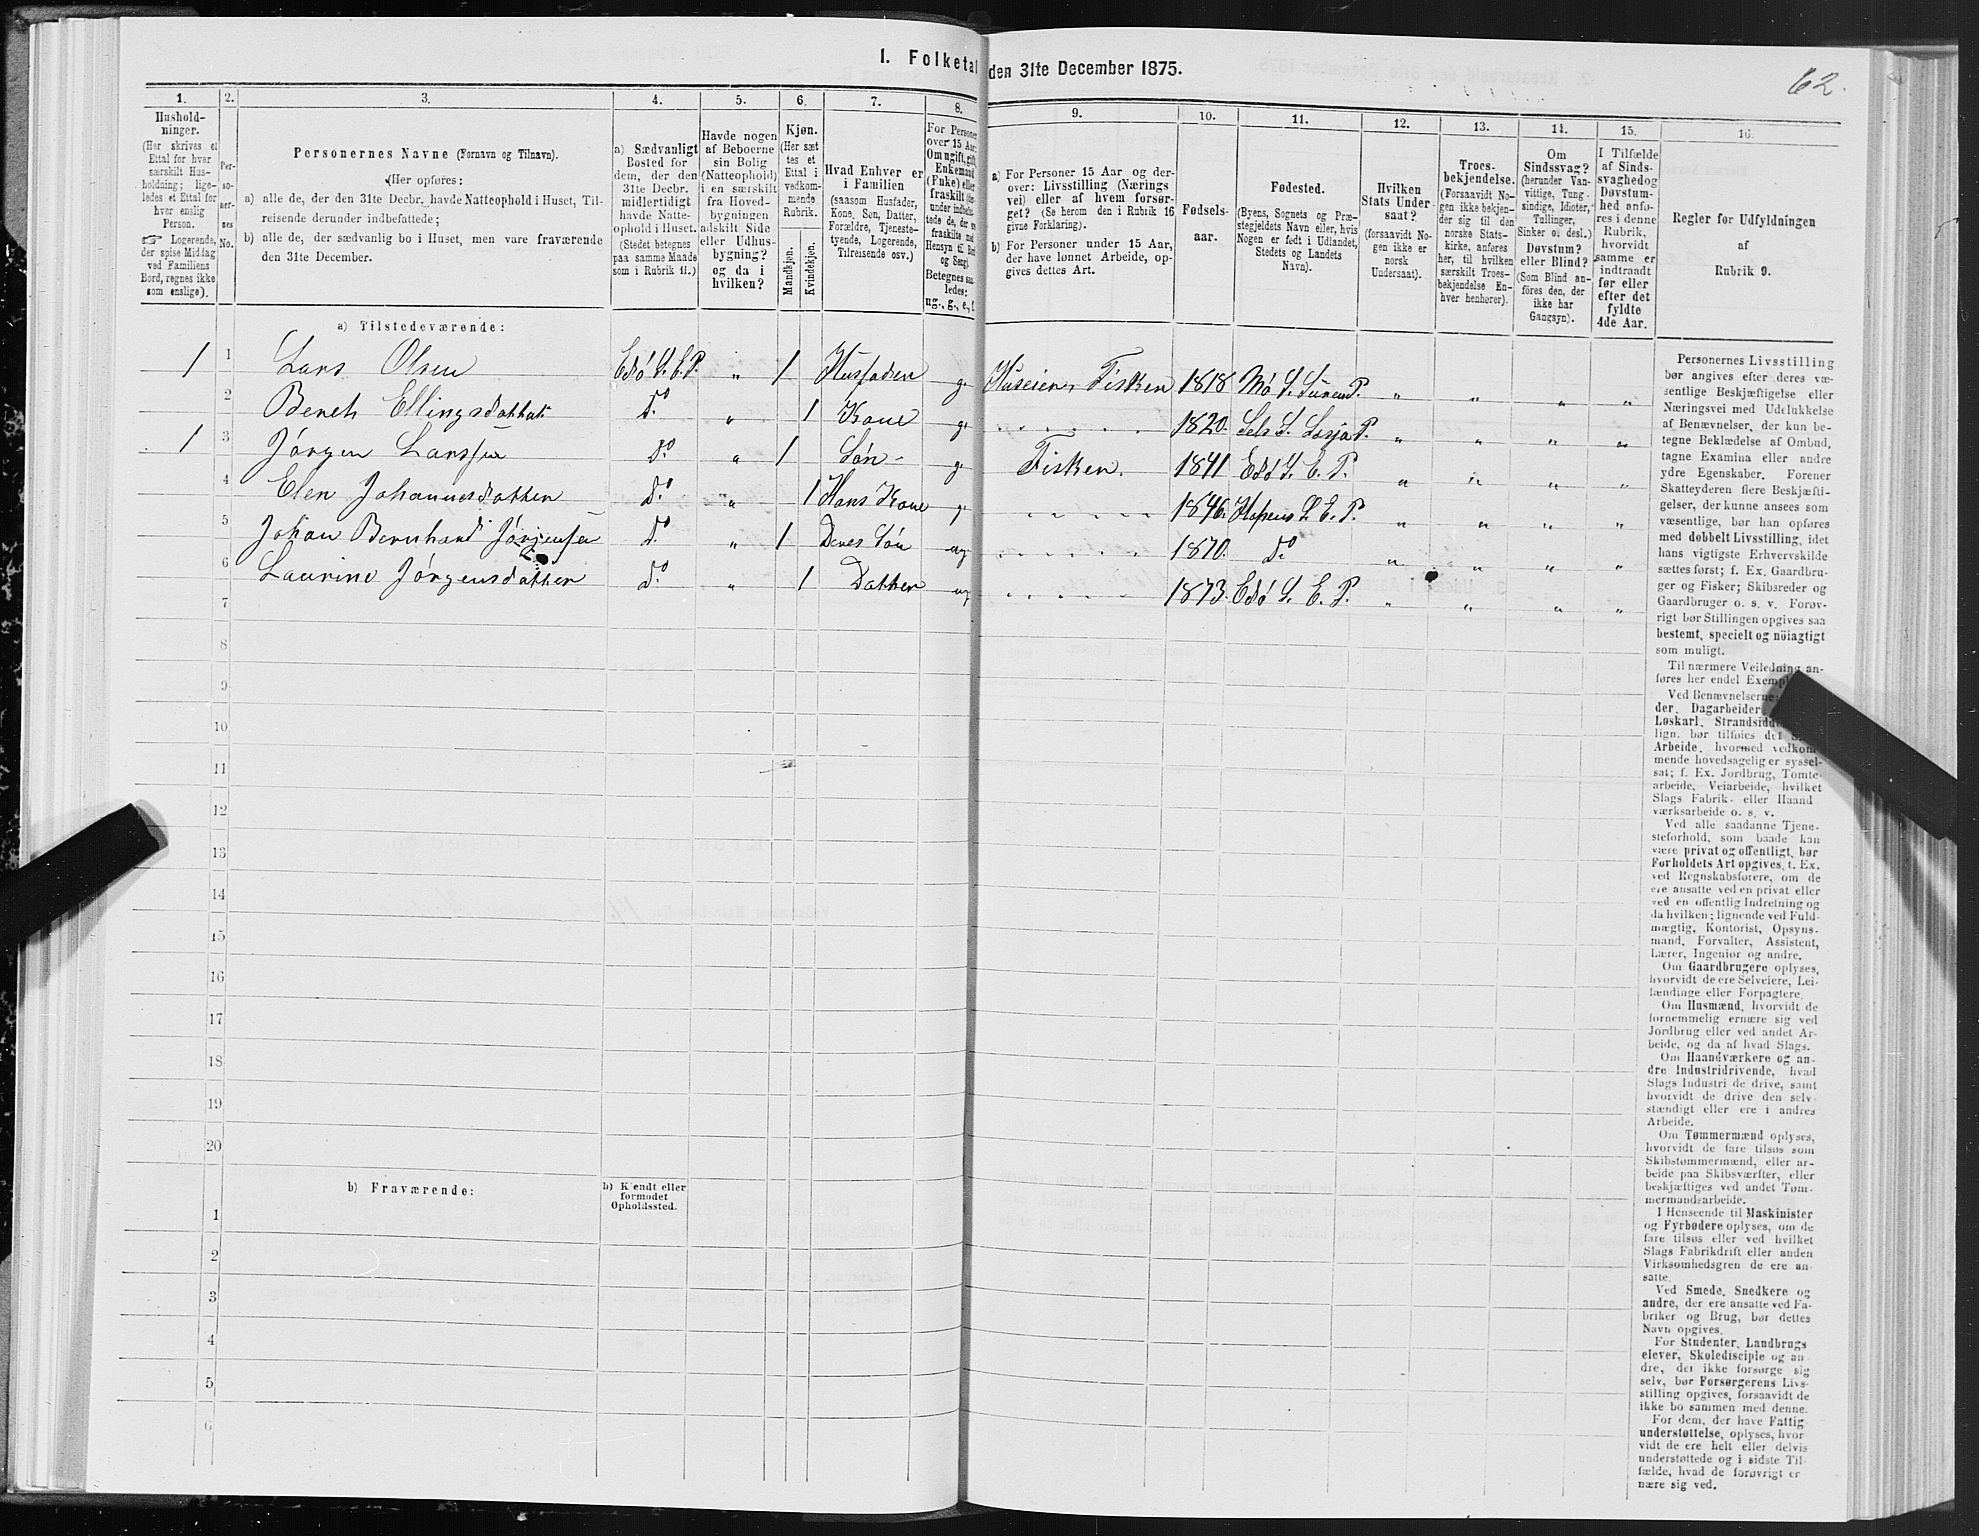 62.
1. Folketal den 31te December 1875.
1.
Hushold-
ninger.
(Her skrives et
Ettal for hver
særskilt Hus-
holdning; lige-
ledes et Ettal for
hver enslig
Person.
☞ Logerende,
der spise Middag
ved Familiens
Bord, regnes ikke
som enslige).
2.
Per-
so-
ner-
nes
No.
3.
Personernes Navne (Fornavn og Tilnavn).
(Her opføres:
a) alle de, der den 31te Decbr. havde Natteophold i Huset, Til-
reisende derunder indbefattede;
b) alle de, der sædvanlig bo i Huset, men vare fraværende
den 31te December.
4.
a) Sædvanligt
Bosted for
dem, der den
31te Decbr.
midlertidigt
havde Natte-
ophold i Huset.
(Stedet betegnes
paa samme Maade
som i Rubrik 11.)
5.
Havde nogen
af Beboerne
sin Bolig
(Natteophold)
i en særskilt
fra Hoved-
bygningen
adskilt Side
eller Udhus-
bygning?
og da i
hvilken?
6.
Kjøn.
(Her sæt
tes et
Ettal i
vedkom-
mende
Rubrik.
Mandkjøn.
Kvindekjøn.
7.
Hvad Enhver er
i Familien
(saasom Husfader,
Kone, Søn, Datter,
Forældre, Tjeneste-
tyende, Logerende,
Tilreisende osv.)
8.
For Personer
over 15 Aar:
Om ugift, gift,
Enkemand
(Enke) eller
fraskilt
Betegnes saa-
ledes:
ug., g., e., f.
9.
a) For Personer 15 Aar og der-
over: Livsstilling (Nærings
vei) eller af hvem forsør-
get? (Se herom den i Rubrik 16
givne Forklaring).
b) For Personer under 15 Aar,
der have lønnet Arbeide, op-
gives dettes Art.
10.
Fødsels-
aar.
11.
Fødested.
(Byens, Sognets og Præ-
stegjeldets Navn eller, hvis
Nogen er født i Udlandet,
Stedets og Landets
Navn).
12.
Hvilken
Stats Under
saat?
(forsaavidt No-
gen ikke er
norsk
Undersaat).
13.
Troes-
bekjendelse.
(Forsaavidt No-
gen ikke bekjen-
der sig til den
norske Stats-
kirke, anføres
her, til hvilken
særskilt Troes-
bekjendelse En-
hver henhører).
14.
Om
Sindssvag?
(herunder Van-
vittige, Tung-
sindige, Idioter,
Tullinger,
Sinker o. desl.)
Døvstum?
eller Blind?
(Som Blind an-
føres den, der
ikke har
Gangsyn).
15.
I Tilfælde
af Sinds-
svaghed og
Døvstum-
hed anfø-
res i denne
Rubrik,
hvorvidt
samme er
indtraadt
før eller
efter det
fyldte
4de Aar.
16.
Regler for Udfyldningen
af
Rubrik 9.
a) Tilstedeværende:
1 1 Lars Olsen Edø S. E. P. „ 1 Husfader g. Huseier, Fisker 1818 Mø S. Suren P. „ „ „ „
2 Bereth Ellingsdatter Do „ 1 Kone g. 1820. Sels S. Lesja P. „ „ „ „
1 3 Jørgen Larssen Do „ 1 Søn g. Fisker. 1841 Edø S. E. P. „ „ „ „
4 Elen Johannesdatter Do „ 1 Hans Kone g. 1846. Hopens S. E. P. „ „ „ „
5 Johan Bernhard Jørgensen Do „ 1 Deres Søn ug 1870. Do „ „ „ „
6 Laurine Jørgensdatter Do „ 1 Datter ug 1873. Edø S. E. P. „ „ „ „
7
8
9
10
11
12
13
14
15
16
17
18
19
20
b) Fraværende:
b) Kjendt eller
formodet
Opholdssted.
1
2
3
4
5
6
Personernes Livsstilling
bør angives efter deres væ-
sentlige Beskjæftigelse eller
Næringsvei med Udelukkelse
af Benævnelser, der kun be-
tegne Beklædelse af Ombud,
tagne Examina eller andre
ydre Egenskaber. Forener
Skatteyderen flere Beskjæfti-
gelser, der kunne ansees som
væsentlige, bør han opføres
med dobbelt Livsstilling, idet
hans vigtigste Erhvervskilde
sættes først; f. Ex. Gaardbru-
ger og Fisker; Skibsreder og
Gaardbruger o. s. v. Forøv-
rigt bør Stillingen opgives saa
bestemt, specielt og nöiagtigt
som muligt.
Til nærmere Veiledning an-
føres her endel
Ved Benævnelserne:
der, Dagarbeider,
Løskarl,
lign. bør tilføies det
Arbeide, hvormed vedkom-
mende hovedsagelig er syssel-
sat; f. Ex. Jordbrug, Tomte-
arbeide, Veiarbeide, hvilket
Slags Fabrik- eller Haand
værksarbeide o. s. v.
Ved alle saadanne Tjene-
steforhold, som baade kan
være privat og offentligt, bør
Forholdets Art opgives, f. Ex.
ved Regnskabsførere, om de
ere ansatte ved en privat eller
ved en offentlig Indretning og
da hvilken; lignende ved Fuld-
mægtig, Kontorist, Opsyns-
mand, Forvalter, Assistent,
Lærer, Ingeniør og andre.
Om Gaardbrugere oplyses,
hvorvidt de ere Selveiere, Lei-
lændinge eller Forpagtere.
Om Husmænd, hvorvidt de
fornemmelig ernære sig ved
Jordbrug eller ved andet Ar-
beide, og da af hvad Slags.
Om Haandværkere og an-
dre Industridrivende, hvad
Slags Industri de drive, samt
hvorvidt de drive den selv-
stændigt eller ere i andres
Arbeide.
Om Tømmermænd oplyses,
hvorvidt de fare tilsøs som
Skibstømmermænd, eller ar-
beide paa Skibsværfter, eller
beskjæftiges ved andet Tøm-
mermandsarbeide.
I Henseende til Maskinister
og Fyrbødere oplyses, om de
fare tilsøs eller ved hvilket
Slags Fabrikdrift eller anden
Virksomhedsgren de ere an-
satte.
Ved Smede, Snedkere og
andre, der ere ansatte ved Fa-
briker og Brug, bør dettes
Navn opgives.
For Studenter, Landbrugs
elever, Skoledisciple og an
dre, der ikke forsørge sig
selv, bør Forsørgerens Livs-
stilling opgives, forsaavidt de
ikke bo sammen med denne.
For dem, der have Fattig
understøttelse, oplyses, hvor
vidt de ere helt eller delvis
understøttede og i sidste Til-
fælde, hvad de forøvrigt er
nære sig ved.